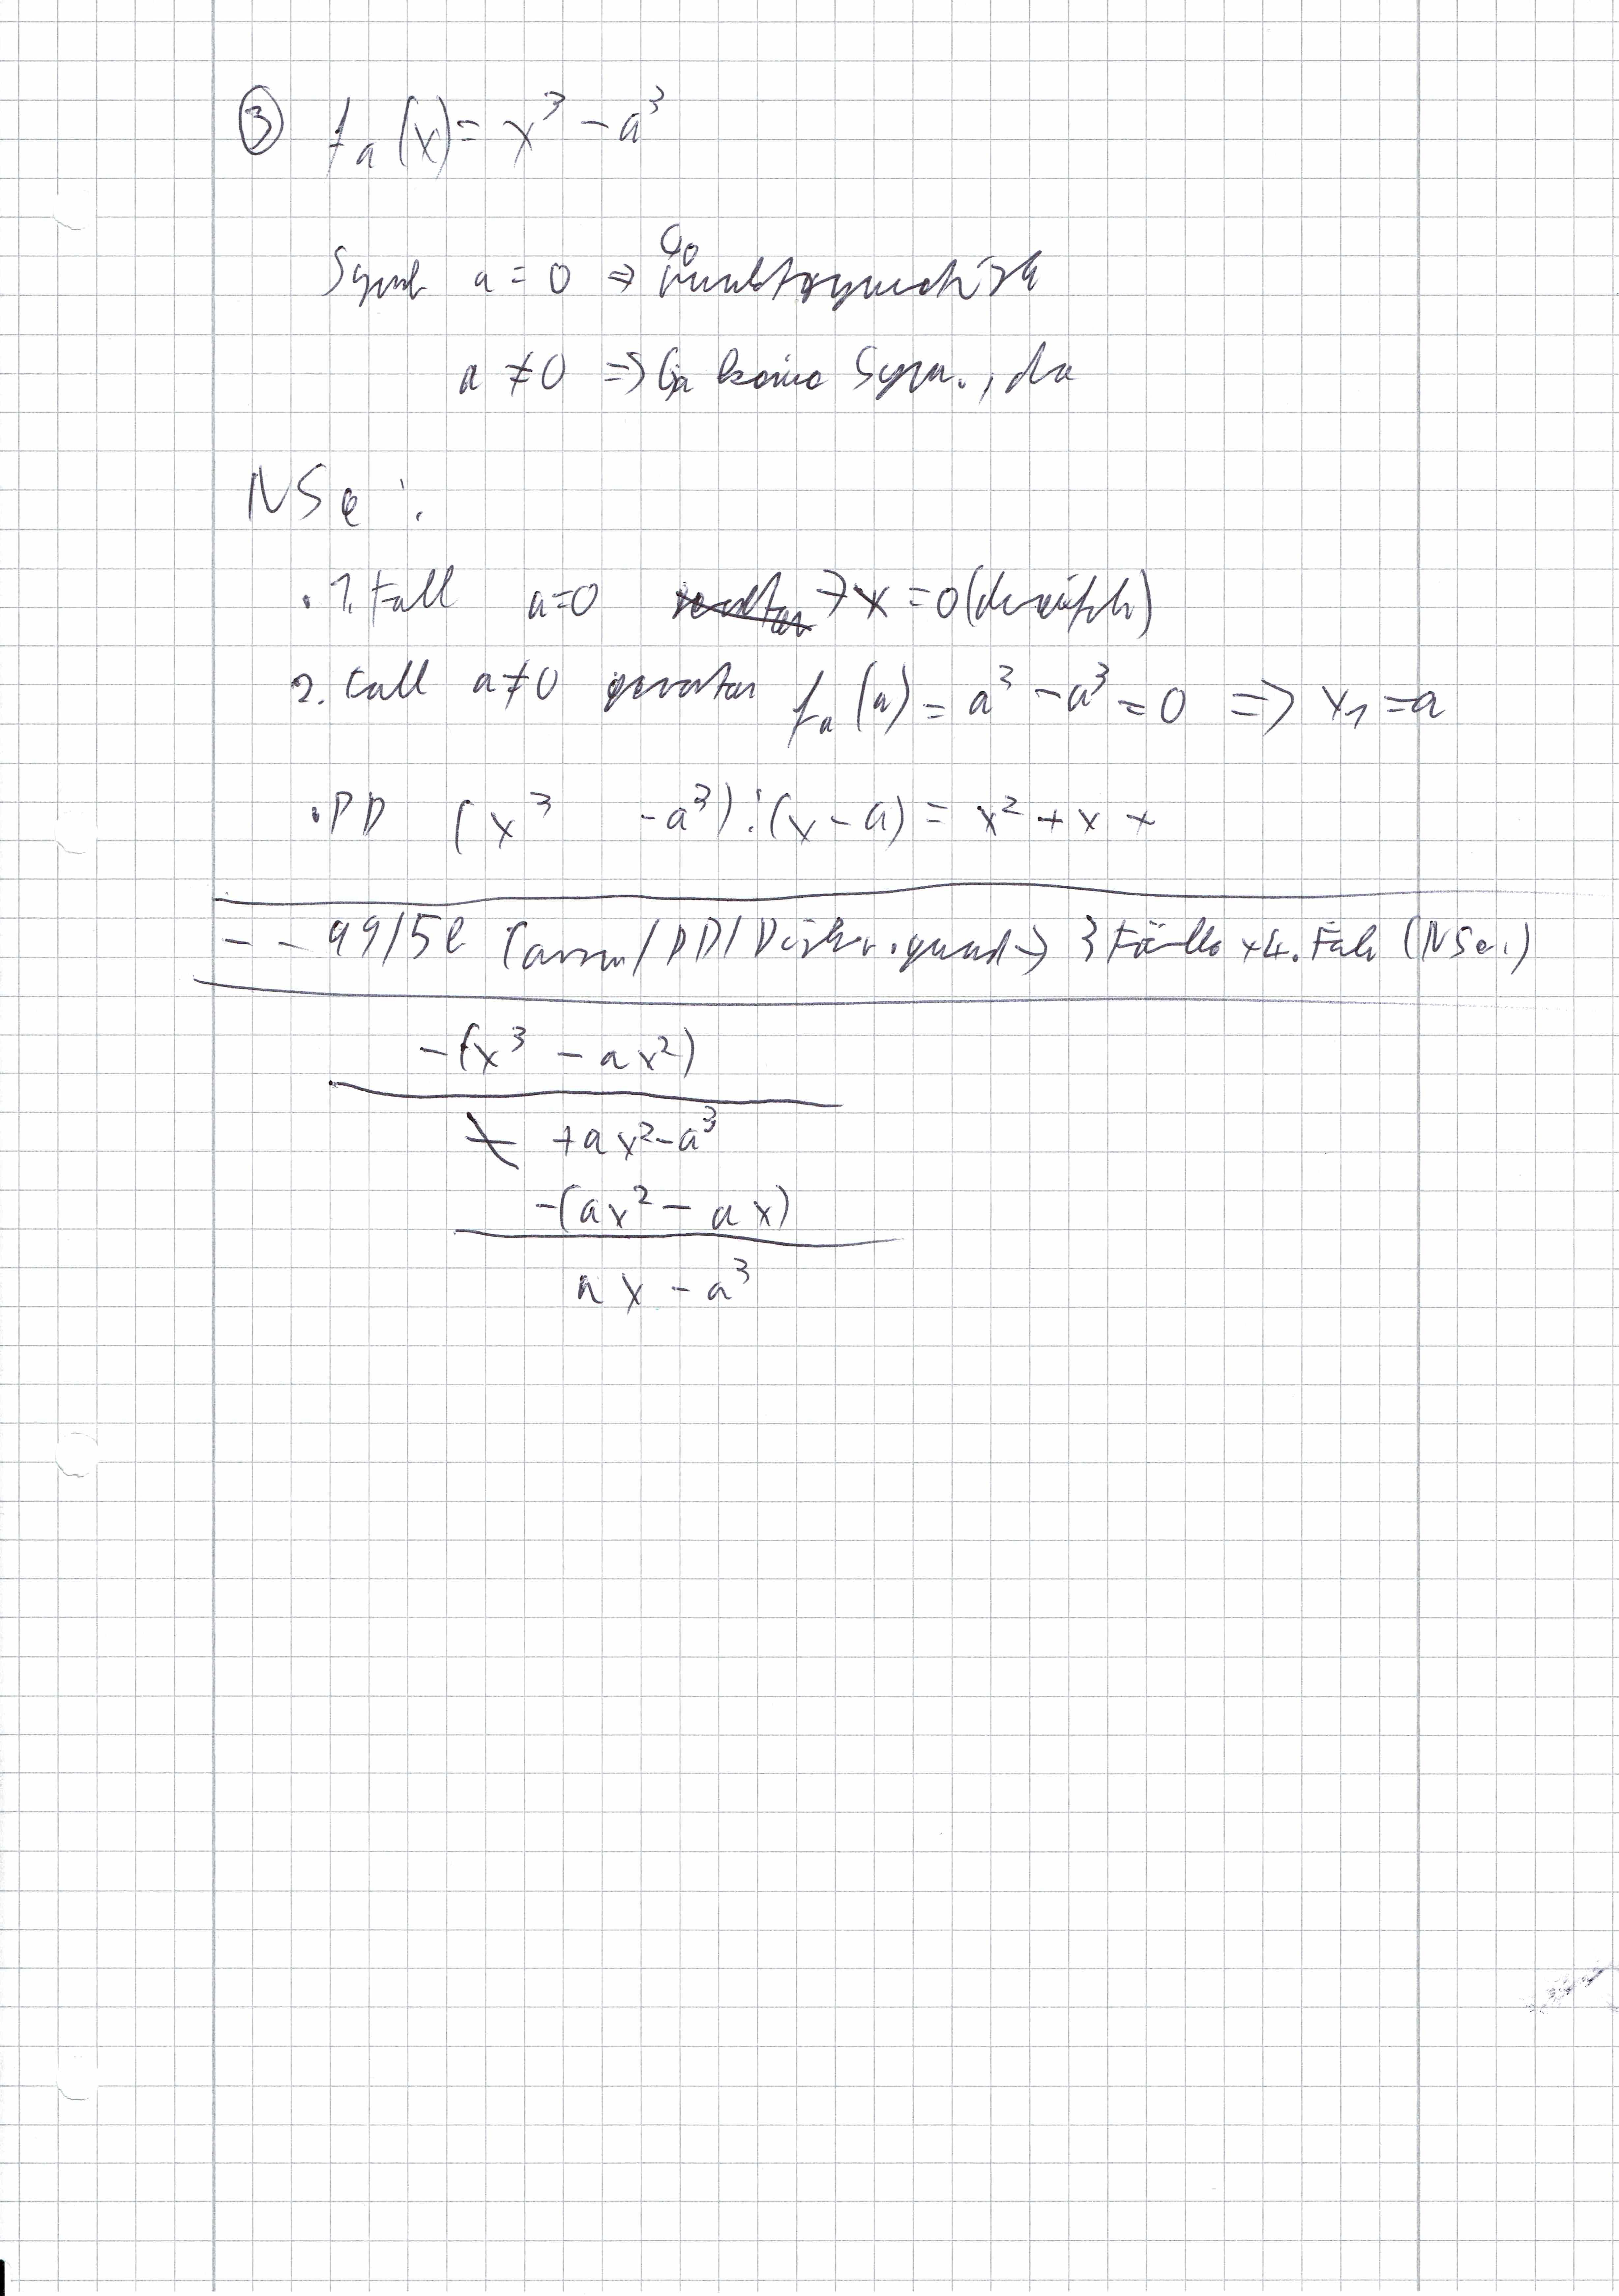 ③ fₐ(x) = x³ - a³
Sym a = 0 ⇒ G₀ punktsymmetrisch
a ≠ 0 ⇒ Gₐ keine Sym., da
NSe:
. 1. Fall a=0 → x = 0 (dreifach)
2. Fall a≠0 geraten fₐ(a) = a³ - a³ = 0 ⇒ x₁ = a
. PD (x³ - a³) : (x - a) = x² + x +
-- 99/5e /PD/ Diskr. quad → 3 Fälle + 4. Fall (NSe.)
-(x³ - ax²)
+ax² - a³
-(ax² - ax)
ax - a³